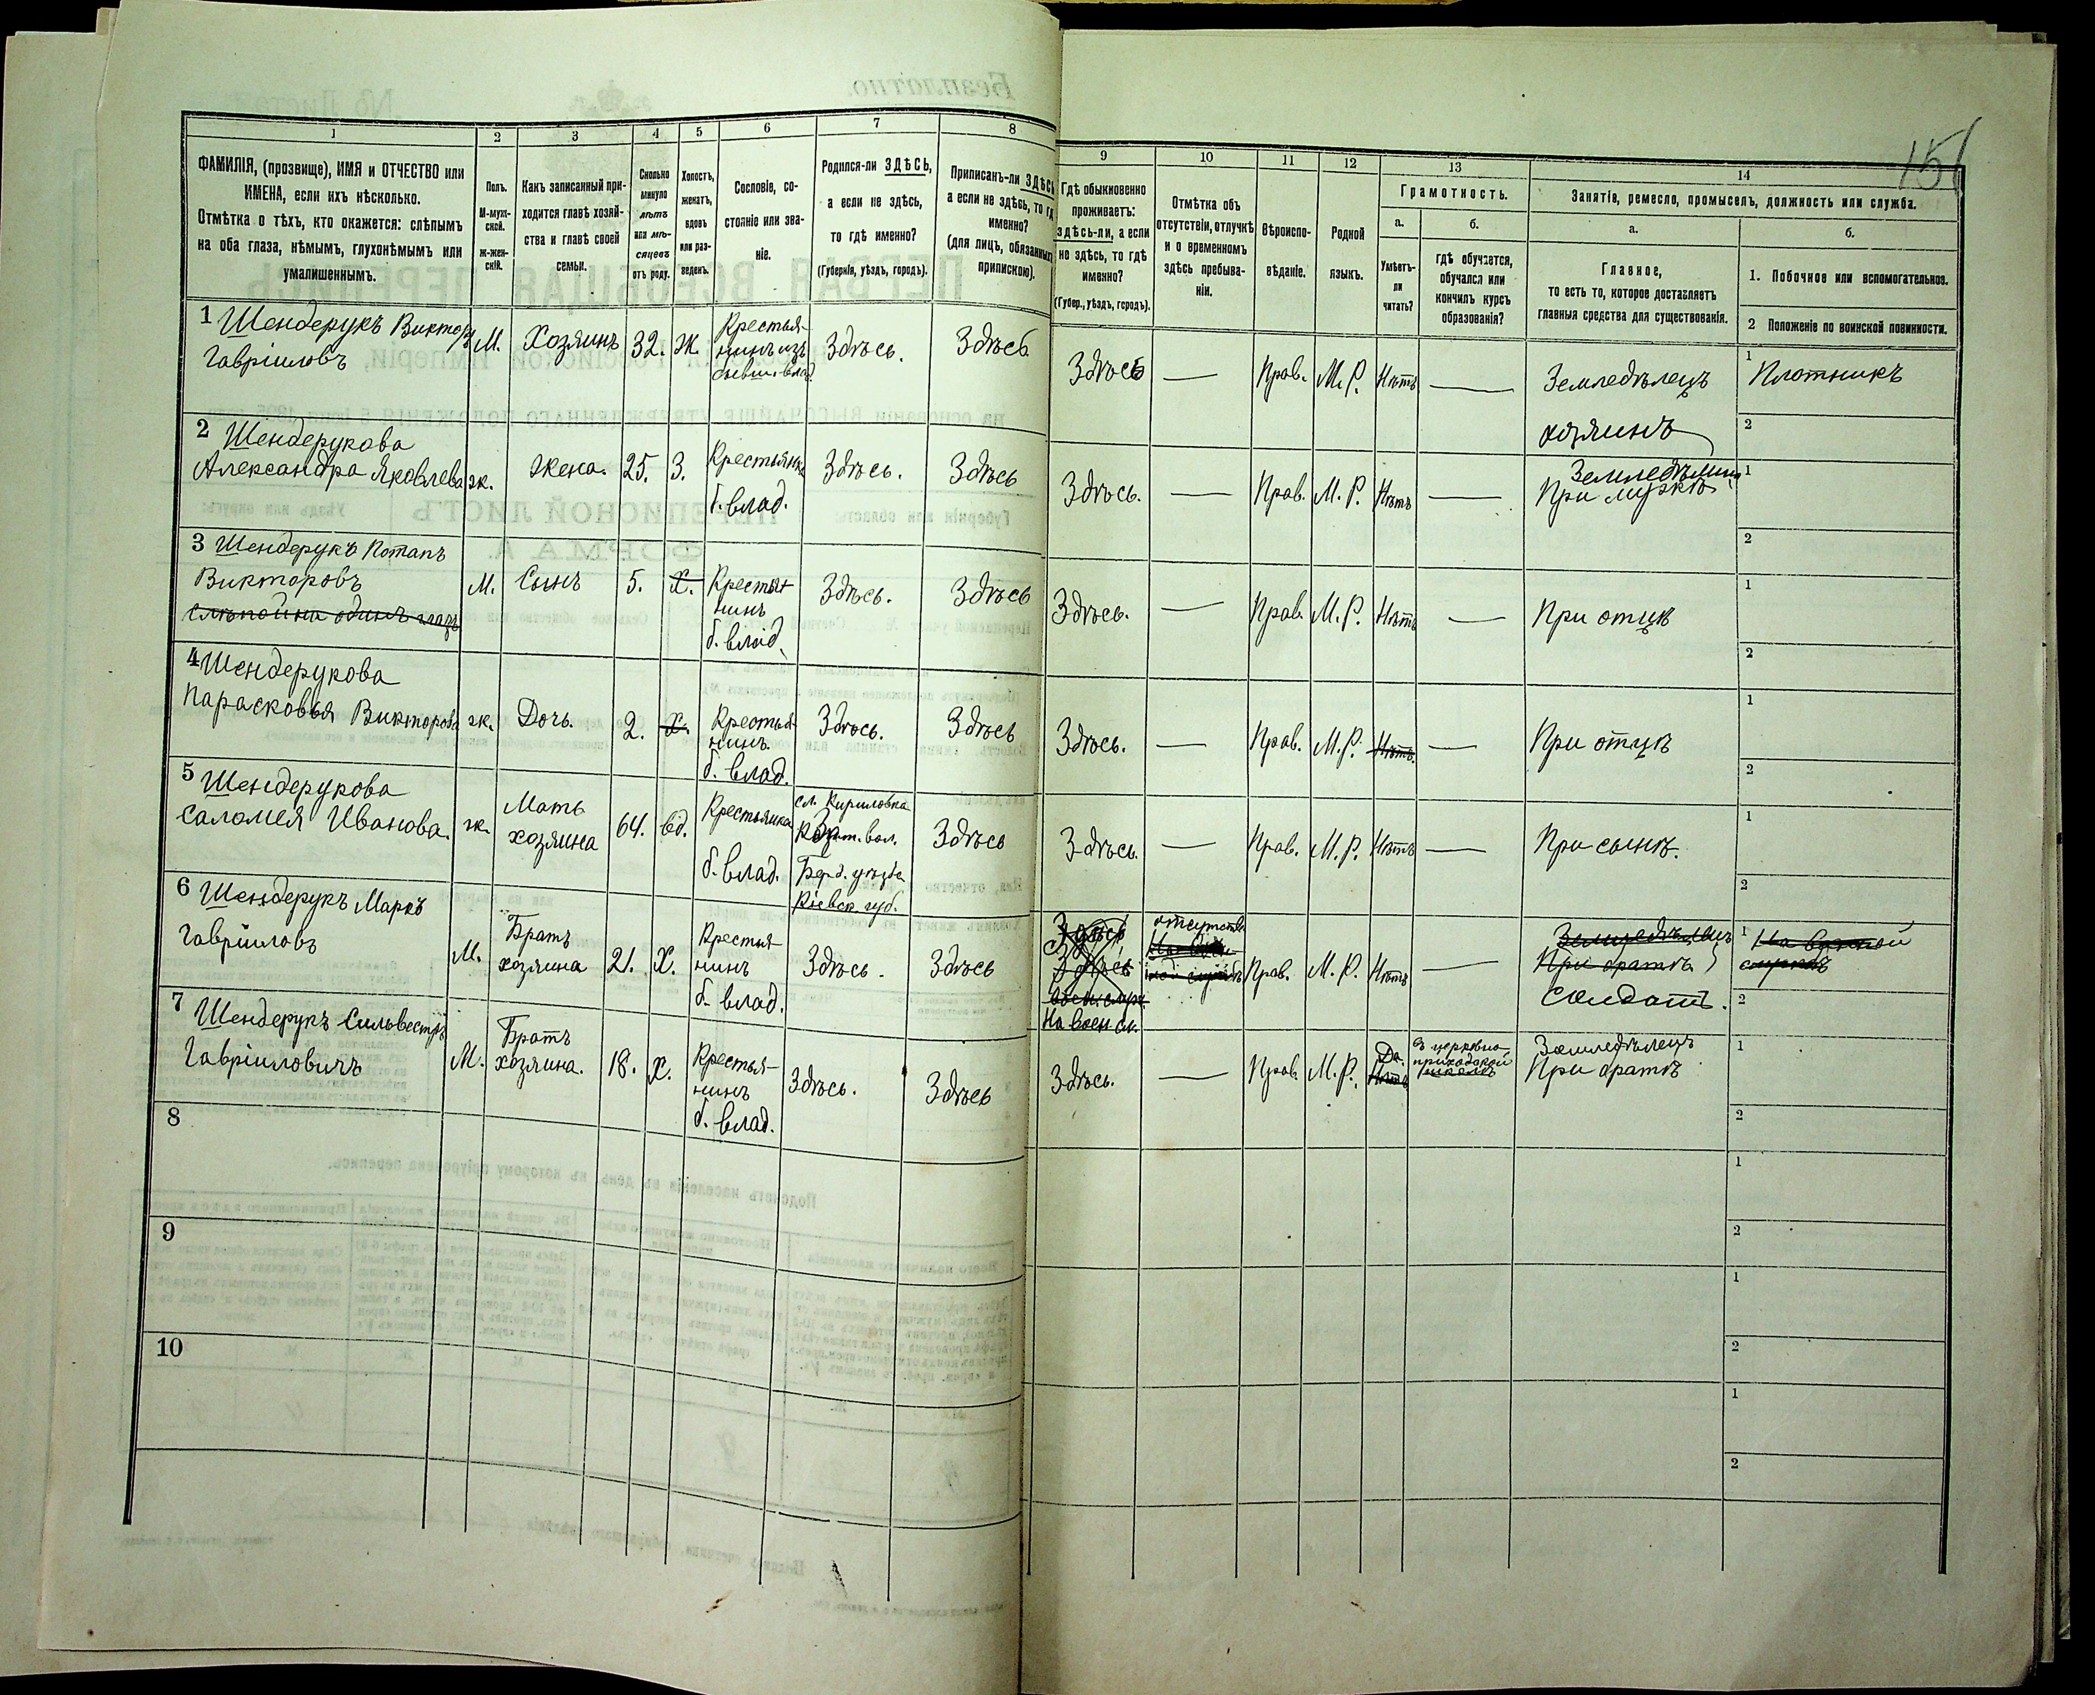 151
1
2
3
4
5
6
7
8
9
10
11
12
13
14
ФАМИЛІЯ, (прозвище), ИМЯ и ОТЧЕСТВО или
ИМЕНА, если ихъ нѣсколько.
Отмѣтка о тѣхъ, кто окажется: слѣпымъ
на оба глаза, нѣмымъ, глухонѣмымъ или
умалишеннымъ.
Полъ.
М-муж-
ской.
ж-жен-
скій.
Какъ записанный при-
ходится главѣ хозяй-
ства и главѣ своей
семьи.
Сколько
минуло
лѣтъ
или мѣ-
сяцевъ
отъ роду.
Холостъ,
женатъ,
вдовъ
или раз-
веденъ.
Сословіе, со-
стояніе или зва-
ніе.
Родился-ли ЗДѢСЬ,
а если не здѣсь,
то гдѣ именно?
(Губернія, уѣздъ, городъ).
Приписанъ-ли ЗДѢСЬ
а если не здѣсь, то гд
именно?
(для лицъ, обязанныхъ
припискою).
Гдѣ обыкновенно
проживаетъ:
здѣсь-ли, а если
не здѣсь, то гдѣ
именно?
(Губер., уѣздъ, городъ).
Отмѣтка объ
отсутствіи, отлучкѣ
и о временномъ
здѣсь пребыва-
ніи.
Вѣроиспо-
вѣданіе.
Родной
языкъ.
Грамотность.
а.
б.
Умѣетъ-
ли
читать?
гдѣ обучается,
обучался или
кончилъ курсъ
образованія?
Занятія, ремесло, промыселъ, должность или служба.
а.
б.
Главное,
то есть то, которое доставляетъ
главныя средства для существованія.
1. Побочное или вспомогательное.
2 Положеніе по воинской повинности.
1 Шендерукъ Викторъ
Гавріиловъ
М.
Хозяинъ
32.
Ж.
Крестья-
нинъ изъ
бывш. влад.
Здѣсь.
Здѣсь
Здѣсь
—
Прав.
М. Р.
Нѣтъ
—
Земледѣлецъ
хозяинъ
1
Плотникъ
2
2 Шендерукова
Александра Яковлева
ж.
Жена.
25.
З.
Крестьянка
б. влад.
Здѣсь.
Здѣсь
Здѣсь.
—
Прав.
М. Р.
Нѣтъ
—
При мужѣ
1
2
3 Шендерукъ Потапъ
Викторовъ
слѣпой на одинъ глазъ
М.
Сынъ
5.
Х.
Крестья-
нинъ
б. влад.
Здѣсь.
Здѣсь
Здѣсь.
—
Прав.
М. Р.
Нѣтъ
—
При отцѣ
1
2
4 Шендерукова
Парасковья Викторова
ж.
Дочь.
2.
Х.
Крестья-
нинъ.
б. влад.
Здѣсь.
Здѣсь
Здѣсь.
—
Прав.
М. Р.
Нѣтъ.
—
При отцѣ
1
2
5 Шендерукова
Саломея Иванова.
ж.
Мать
хозяина
64.
вд.
Крестьянка
б. влад.
сл. Кириловка
вол.
Берд. уѣзда
Кіевск. губ.
Здѣсь
Здѣсь.
—
Прав.
М. Р.
Нѣтъ
—
При сынѣ.
1
2
6 Шендерукъ Марко
Гавріиловъ
М.
Братъ
хозяина
21.
Х.
Крестья-
нинъ
б. влад.
Здѣсь.
Здѣсь
Здѣсь
На воен сл.
отсутств
Прав.
М. Р.
Нѣтъ
—
Земледѣлецъ
При братѣ
Солдатъ.
1
На военной
службѣ
2
7 Шендерукъ Сильвестръ
Гавріиловичъ
М.
Братъ
хозяина.
18.
Х.
Крестья-
нинъ
б. влад.
Здѣсь.
Здѣсь
Здѣсь.
—
Прав.
М. Р.
Да.
Нѣтъ
въ церковно-
приходской
школѣ
Земледѣлецъ
При братѣ
1
2
8
1
2
9
1
2
10
1
2